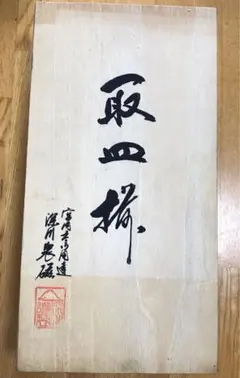 取皿揃
宮内庁御用達
深川製磁